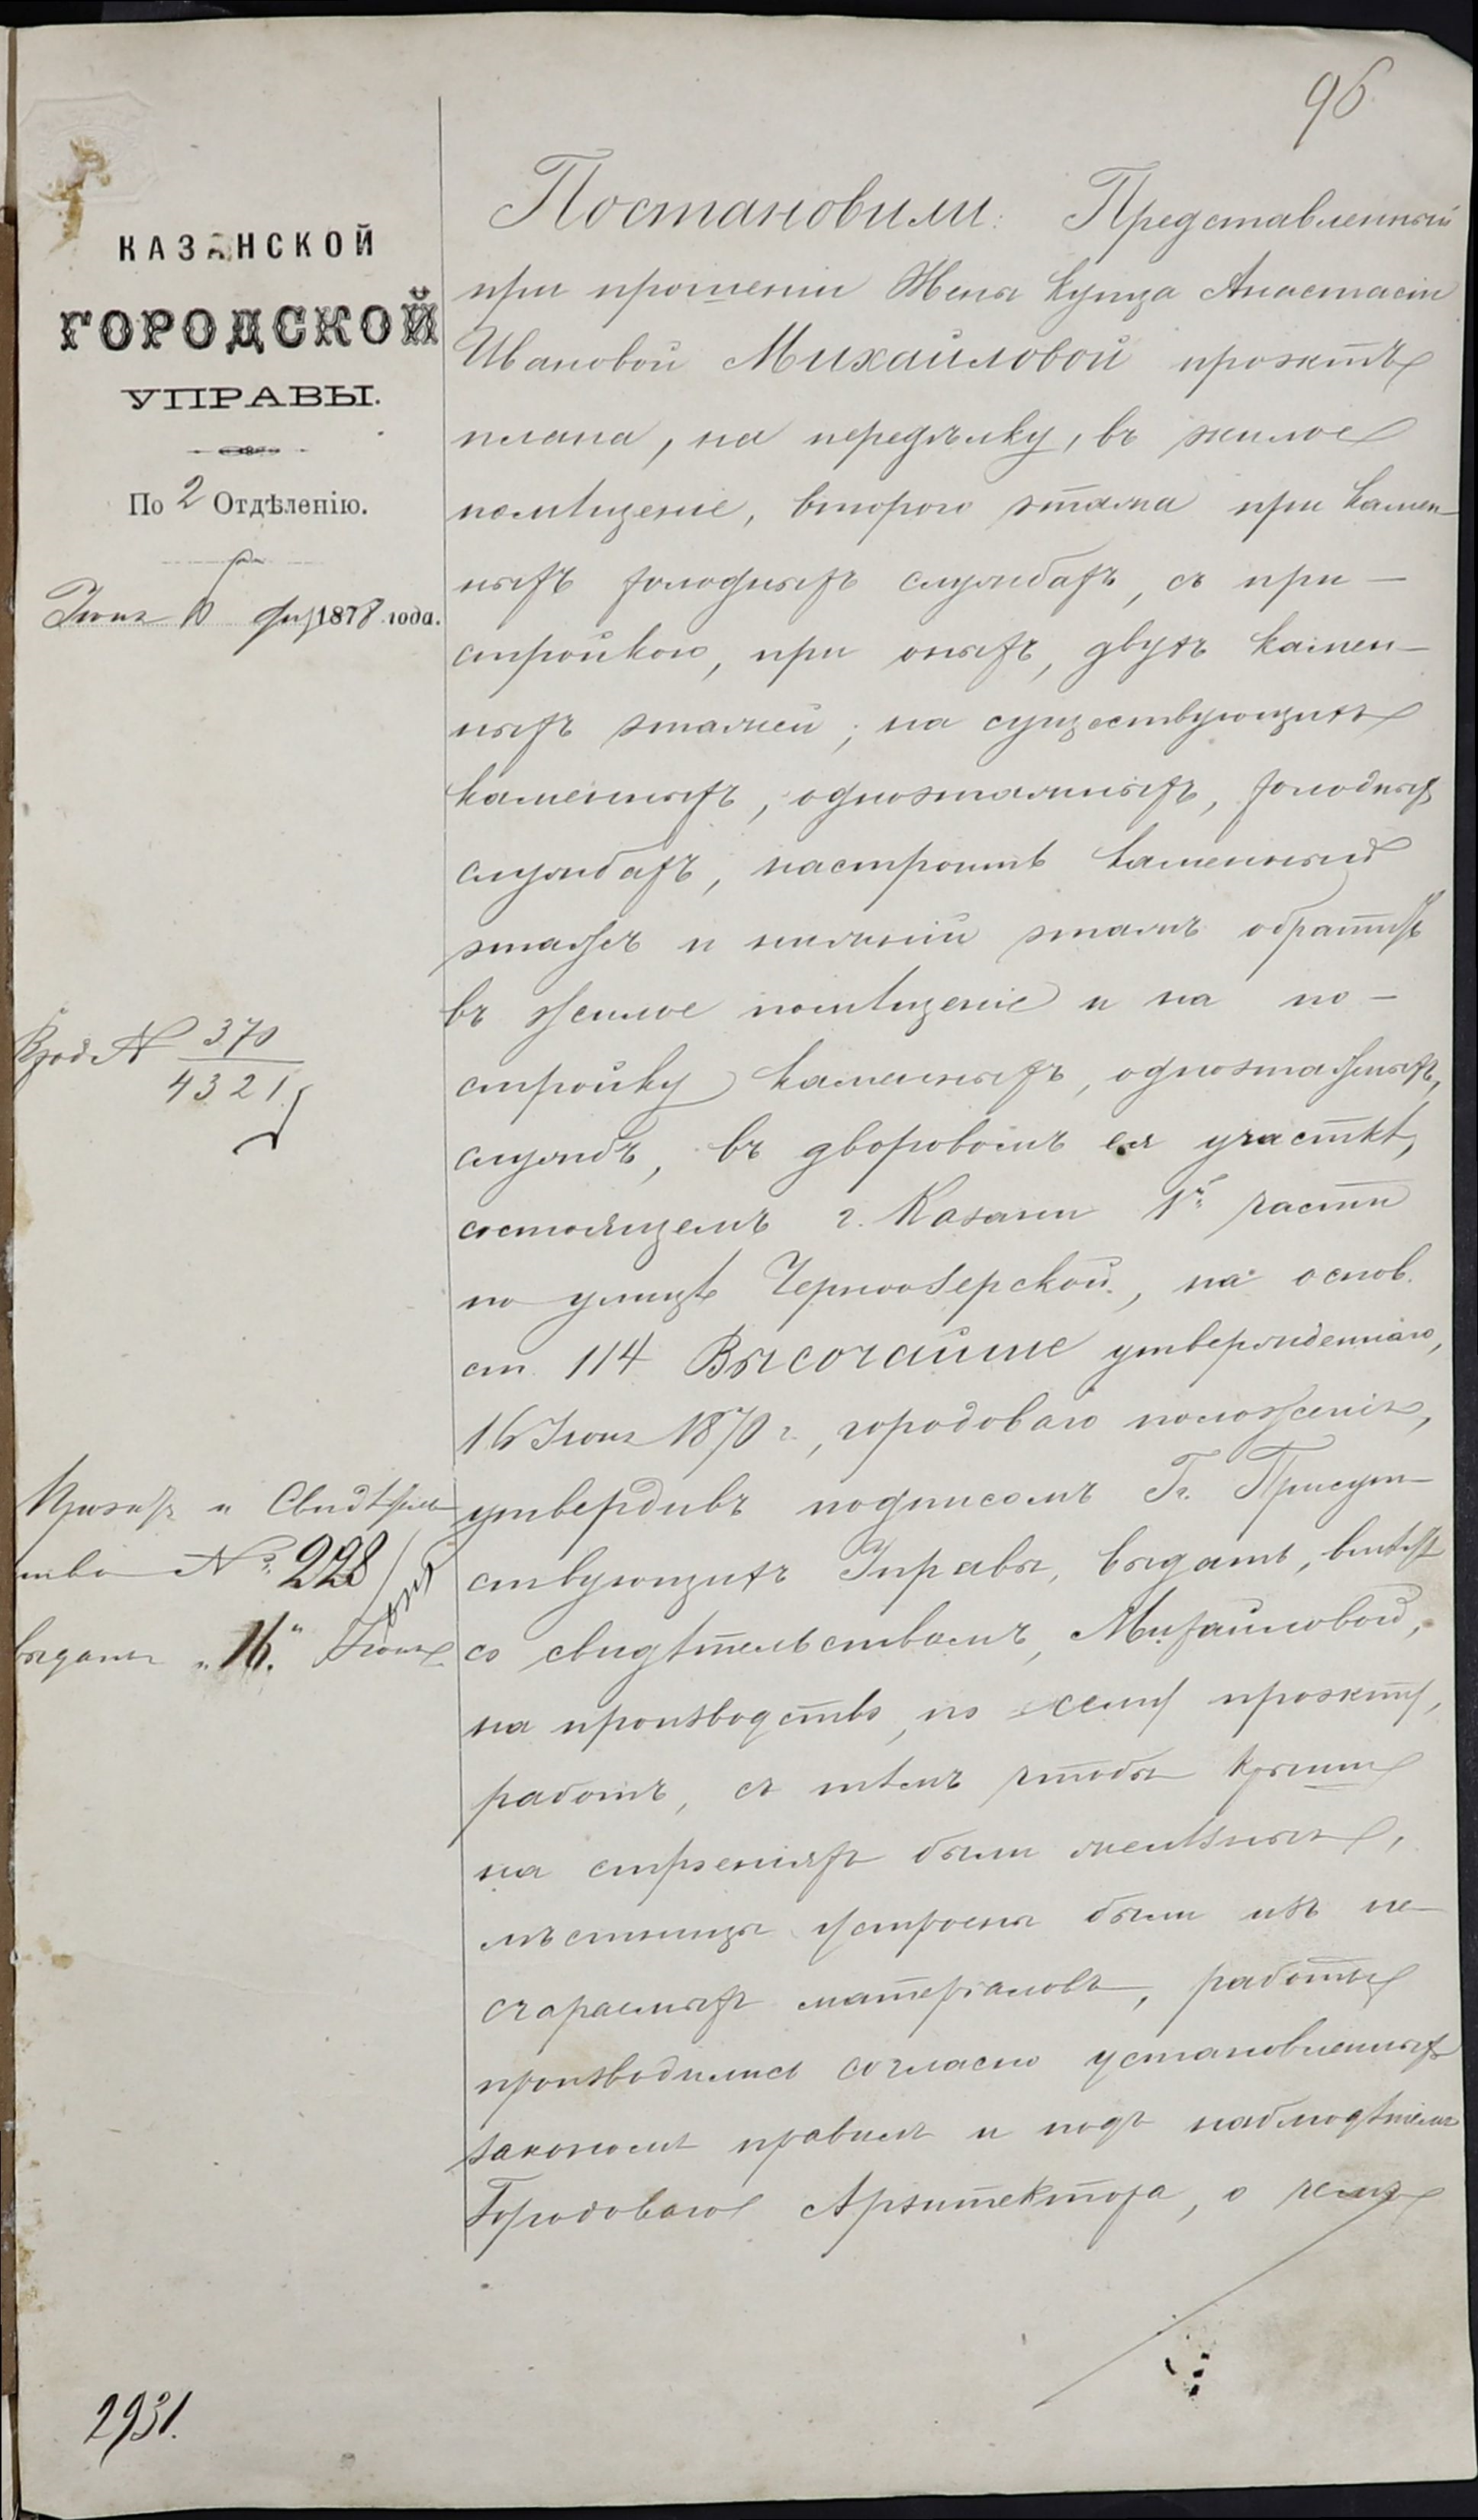 96
КАЗАНСКОЙ
ГОРОДСКОЙ
УПРАВЫ.
По 2 Отдѣленію.
Іюня 10 дня 1878 года.
Постановили: Представленный
при прошеніи Жены Купца Анастасіи
Ивановой Михайловой проэктъ
плана, на передѣлку, въ жилое
помѣщеніе, второго этажа при камен-
ныхъ холодныхъ службахъ, съ при-
стройкою, при оныхъ, двухъ камен-
ныхъ этажей; на существующихъ
каменныхъ, одноэтажныхъ, холодныхъ
службахъ, настроить каменный
этажъ и нижній этажъ обратить
въ жилое помѣщеніе и на по-
стройку каменныхъ, одноэтажныхъ,
службъ, въ дворовомъ ея участкѣ,
состоящемъ г. Казани 1й части
по улицѣ Черноозерской, на основ.
ст. 114 Высочайше утвержденнаго,
16 Іюня 1870 г., городоваго положенія,
утвердивъ подписомъ Гг. Присут-
ствующихъ Управы, выдать, вмѣстѣ
со свидѣтельствомъ, Михайловой,
на производство, по сему проэкту,
работъ, съ тѣмъ чтобы крыши
на строеніяхъ были желѣзныя,
лѣстницы устроены были изъ не-
сгораемыхъ матеріаловъ, работы
производились согласно установленныхъ
закономъ правилъ и подъ наблюдѣніемъ
Городоваго Архитектора, о чемъ
Вход. № 370
4321
Проэктъ и Свидѣтель-
ство № 228
выданы "16" Іюня
2931.